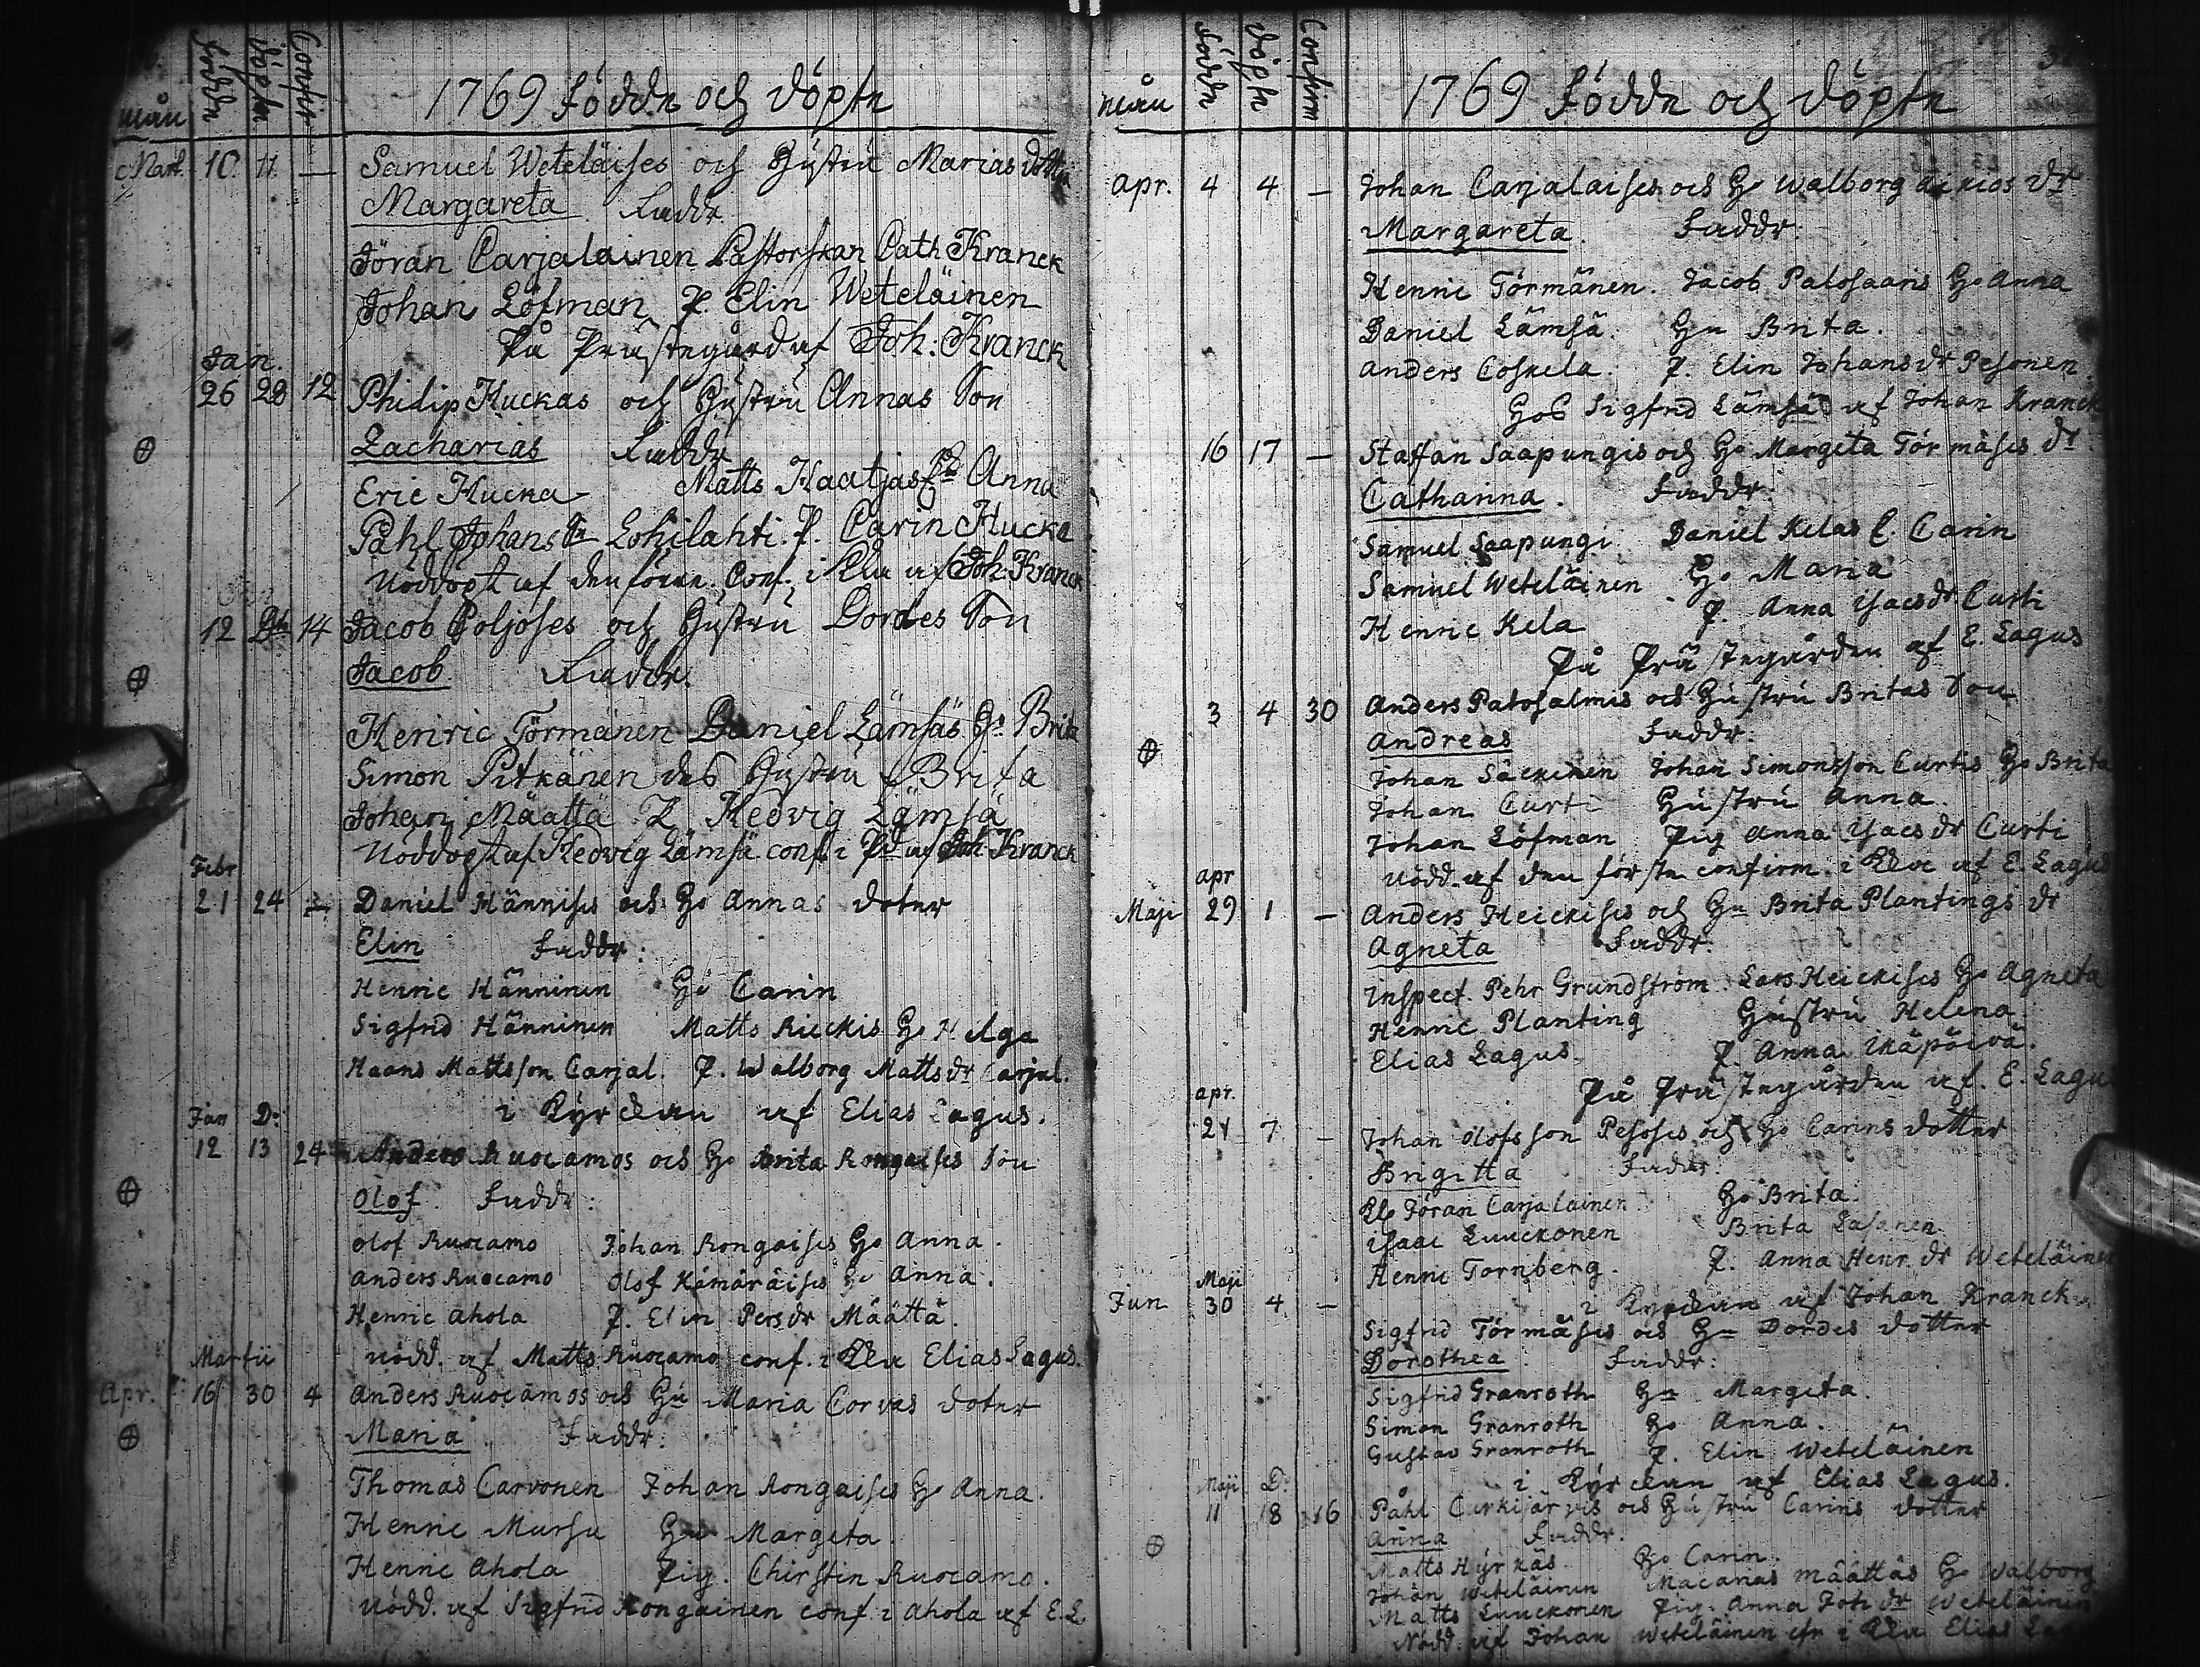 Födde Döpte Confir
mån 1769 Födde och Döpte
Mart. 10. 11. — Samuel Weteläises och Hustru Marias dotter
Margareta Faddr
Jöran Carjalainen Pastorskan Cath Kranck
Johan Löfman P. Elin Weteläinen
På Prästegård af Joh: Kranck
Jan.
26 28 12 Philip Huckas och Hustru Annas Son
Zacharias Faddr
Eric Hucka Matts Kaatjas Anna
Påhl Johans Lohilahti. P. Carin Hucka
Nöddöpt af den förra. Conf. i Kka af Joh. Kranck
12 14 Jacob Poljoses och Hustru Dordes Son
Jacob Faddr.
Henric Törmänen Daniel Lämsäs Ho Brita
Simon Pitkänen des Hustru Brita
Johan Määttä P. Hedvig Lämsä
Nöddöpt af Hedvig Lämsä conf. i Pd af Joh Kranck
Febr
21 24 — Daniel Hännises och Ho Annas doter
Elin Faddr:
Henric Hänninen Ho Carin
Sigfrid Hänninen Matts Rieckis Ho Helga
Haans Mattsson Carjal. P. Walborg Mattsdr Carjal.
i Kyrckan af Elias Lagus.
Jan D:
12 13 24 Anders Ruocamos och Ho Brita Rongaises Son
Olof Faddr:
Olof Ruocamo Johan Rongaises Ho Anna.
Anders Ruocamo Olof Kämäräises Ho Anna.
Henric Ahola P. Elin Persdr Määttä.
Nödd. af Matts Ruocamo conf. i Kka Elias Lagus.
Martii
Apr. 16 30 4 Anders Ruocamos och Hu Maria Corvas doter
Maria Faddr:
Thomas Carvonen Johan Rongaises Ho Anna.
Henric Mursu Hu Margeta.
Henric Ahola Pig. Chirstin Ruocamo.
Nödd. af Sigfrid Rongainen conf. i Ahola af E.L.
Födde Döpte Confirm
mån 1769 Födde och Döpte
Apr. 4 4 — Johan Carjalaises och Ho Walborg Aikios dr
Margareta. Faddr.
Henric Törmänen. Jacob Palosaaris Ho Anna
Daniel Lämsä. Hu Brita.
Anders Coskela. P. Elin Johansdr Pesonen.
Hos Sigfrid Lämsä af Johan Kranck
16 17 — Staffan Saapungis och Ho Margeta Törmäses dr
Catharina. Faddr:
Samuel Saapungi Daniel Kelas Carin
Samuel Weteläinen Ho Maria
Henric Kela P. Anna Isacsdr Curti
På Prästegården af E. Lagus
3 4 30 Anders Palosalmis och Hustru Britas Son
Andreas Faddr:
Johan Säckinen Johan Simonsson Curtis Ho Brita
Johan Curti Hustru Anna.
Johan Löfman Pig Anna Isacsdr Curti
Nödd. af den förste confirm. i Kka af E. Lagus
apr
Maji 29 1 — Anders Heickises och Hu Brita Plantings dr
Agneta Faddr:
Inspect. Pehr Grundström Lars Heickises Ho Agneta
Henric Planting Hustru Helena.
Elias Lagus. P. Anna Ikäpäivä.
På Prästegården af. E. Lagu
apr.
24 7 — Johan Olofsson Pesoses och Ho Carins dotter
Brigitta Faddr:
Jöran Carjalainen Ho Brita.
Isaac Luuckonen Brita Lasanen
Henric Tornberg. P. Anna Henr. dr Weteläinen
i Kyrckan af Johan Kranck
Maji
Jun 30 4 — Sigfrid Törmäses och Hu Dordes dotter
Dorothea. Faddr:
Sigfrid Granroth Hu Margeta.
Simon Granroth Ho Anna.
Gustav Granroth P. Elin Weteläinen
i Kyrckan af Elias Lagus.
Maji D:
11 18 16 Påhl Curkijärvis och Hustru Carins dotter
Anna Faddr.
Matts Hyrkäs Ho Carin.
Johan Weteläinen Macarias Määttäs Ho Walborg
Matts Luuckonen Pig. Anna Joh dr Weteläinen
Nödd. af Johan Weteläinen cfn i Kka Elias